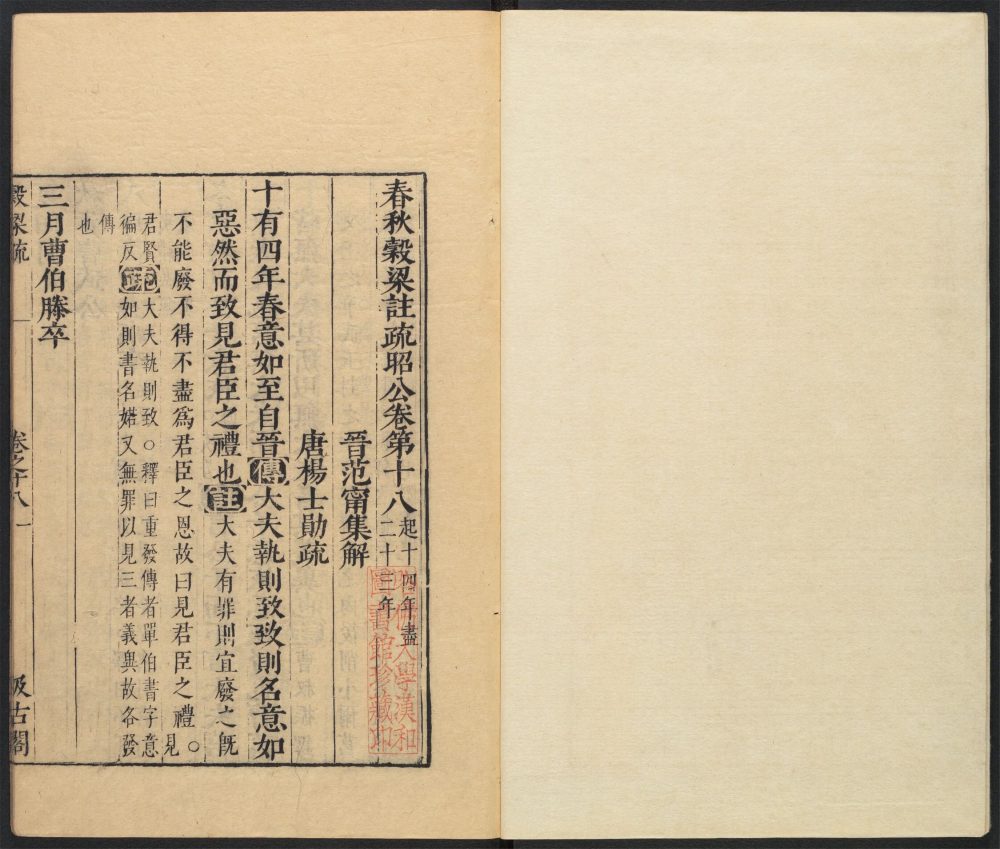 春秋穀梁註疏昭公卷第十八起十四年盡二十三年
晉范甯集解
唐楊士勛疏
十有四年春意如至自晉傳大夫執則致致則名意如
惡然而致見君臣之禮也註大夫有罪則宜廢之既
不能廢不得不盡為君臣之恩故曰見君臣之禮○見
君賢徧反疏大夫執則致○釋曰重發傳者單伯書字意
如則書名婼又無罪以見三者義異故各發
傳
也
三月曹伯滕卒
穀梁疏
卷之十八
一
汲古閣
哈佛大學漢和圖書館珍藏印